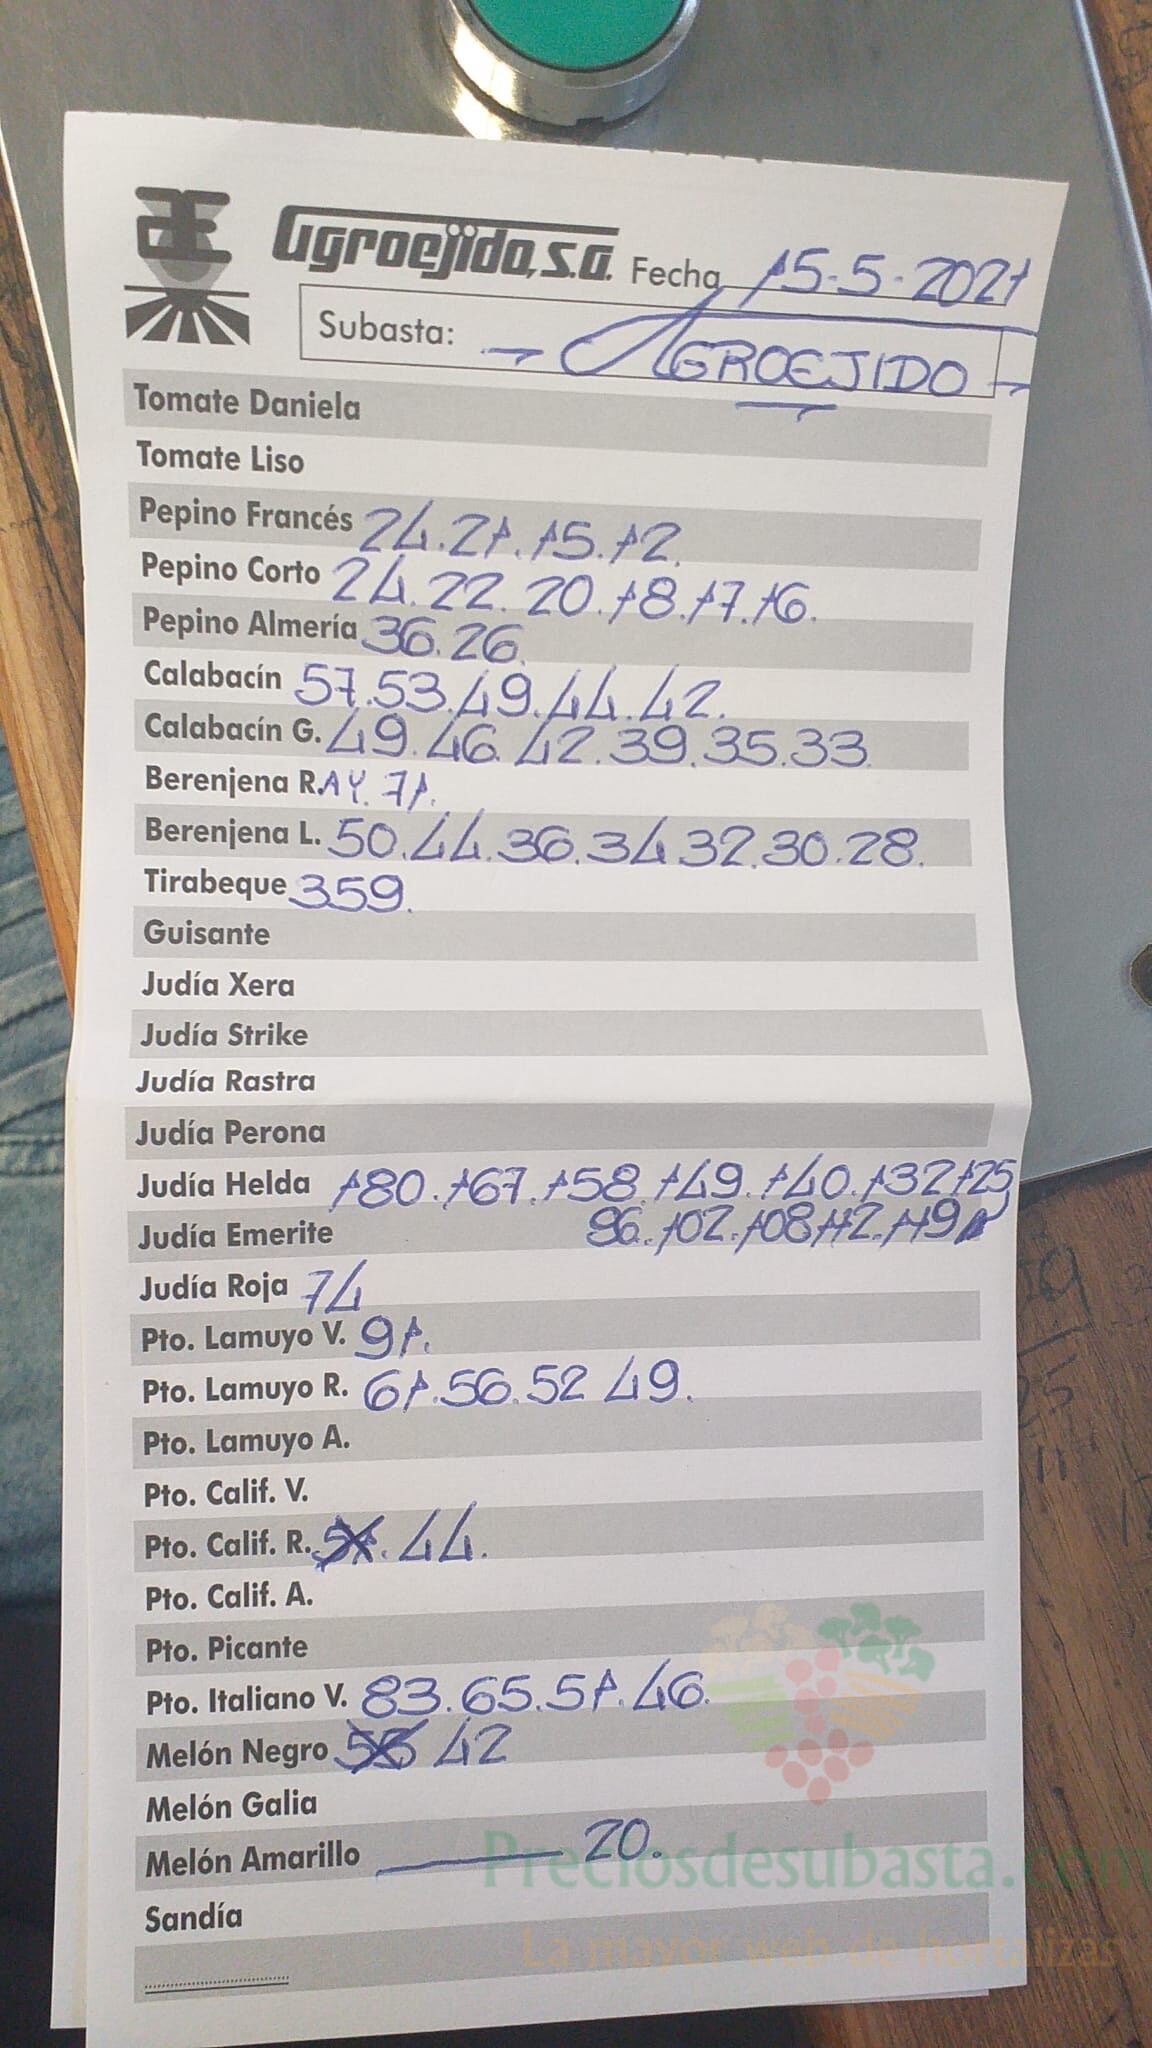 Agroejido, S.A. Fecha 15-5-2021
Subasta: AGROEJIDO
Tomate Daniela
Tomate Liso
Pepino Francés 24.21.15.12.
Pepino Corto 24.22.20.18.17.16.
Pepino Almería 36.26.
Calabacín 57.53.49.44.42.
Calabacín G. 49.46.42.39.35.33.
Berenjena R.AY. 71.
Berenjena L. 50.44.36.34.32.30.28.
Tirabeque 359.
Guisante
Judía Xera
Judía Strike
Judía Rastra
Judía Perona
Judía Helda 180.167.158.149.140.132.125
Judía Emerite 96.102.108.112.119
Judía Roja 74
Pto. Lamuyo V. 91.
Pto. Lamuyo R. 61.56.52 49.
Pto. Lamuyo A.
Pto. Calif. V.
Pto. Calif. R. 44.
Pto. Calif. A.
Pto. Picante
Pto. Italiano V. 83.65.51.46.
Melón Negro 42
Melón Galia
Melón Amarillo 20.
Preciosdesubasta.com
Sandía
La mayor web de hortalizas